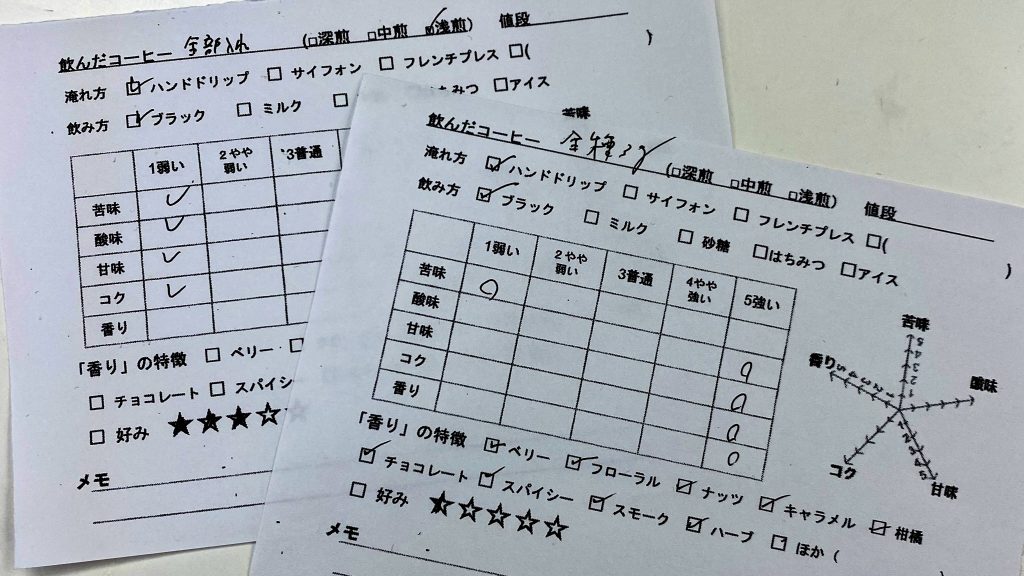 飲んだコーヒー 全部入れ (□深煎 □中煎 ☑浅煎) 値段
淹れ方 ☑ハンドドリップ □サイフォン □フレンチプレス □( )
飲み方 ☑ブラック □ミルク □ はちみつ □アイス
1弱い 2やや弱い 3普通
苦味 ✓
酸味 ✓
甘味 ✓
コク ✓
香り
「香り」の特徴 □ベリー □
□チョコレート □スパイシ
□好み ★★★☆☆
メモ
苦味
飲んだコーヒー (□深煎 □中煎 □浅煎) 値段
淹れ方 ☑ハンドドリップ □サイフォン □フレンチプレス □( )
飲み方 ☑ブラック □ミルク □砂糖 □はちみつ □アイス
1弱い 2やや弱い 3普通 4やや強い 5強い
苦味 ○
酸味 ○
甘味 ○
コク ○
香り ○
苦味 5 4 3 2 1
酸味
甘味
コク
香り 5 4 3 2
「香り」の特徴 ☑ベリー ☑フローラル ☑ナッツ ☑キャラメル ☑柑橘
☑チョコレート ☑スパイシー ☑スモーク ☑ハーブ □ほか (
□好み ★☆☆☆☆
メモ